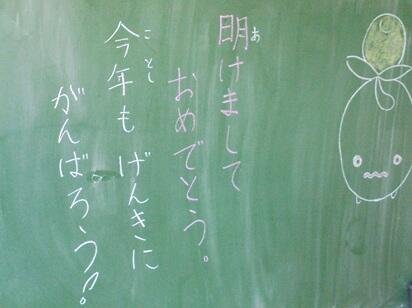 明けまして
おめでとう。
今年もげんきに
がんばろう!
あ
ことし